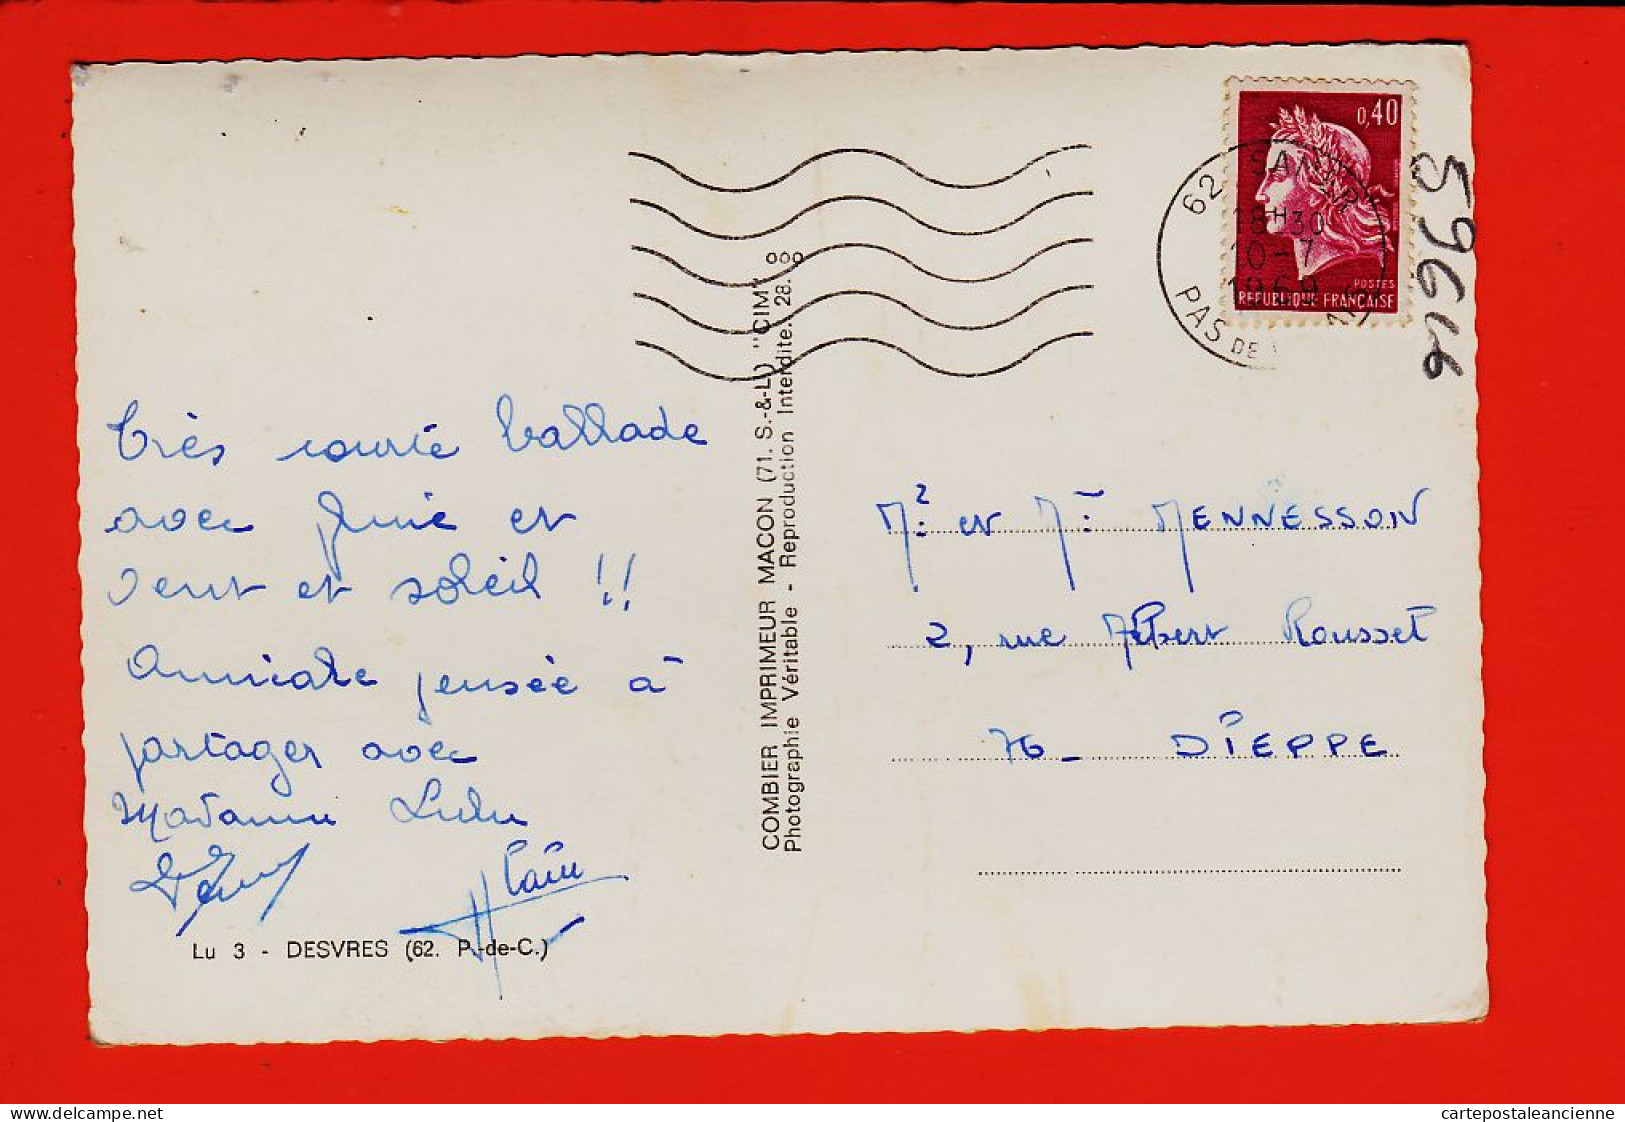 Très courte ballade
avec pluie et
vent et soleil !!
Amicale pensée à
partager avec
Madame Lulu
Alain
Lu 3 - DESVRES (62. P.-de-C.)
COMBIER IMPRIMEUR MACON (71. S.-&-L.) "CIM"
Photographie Véritable - Reproduction Interdite. 28.
0,40
POSTES
REPUBLIQUE FRANÇAISE
62
18H30
10-7
1969
PAS DE
5964
Mr et Me MENNESSON
2, rue Albert Rousset
76_ DIEPPE
cartepostaleancienne
www.delcampe.net